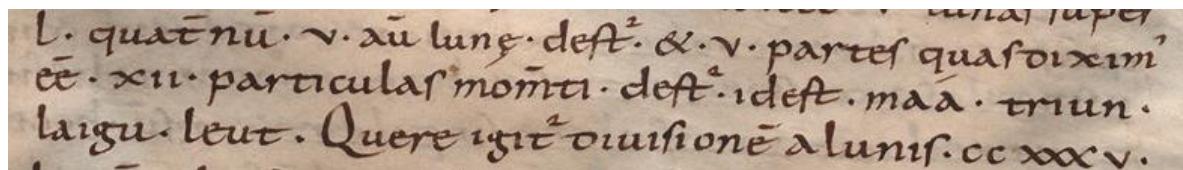 lunas super
l · quat̄nū · v · aū lunę · deſt̉ · & · v · partes quas diximꝰ
eē · xii · particulas mom̄ti · deſt̉ · ideſt · maá · triun ·
laigu · leut · Quere igit̉ diuisionē a lunis · cc xxx v ·